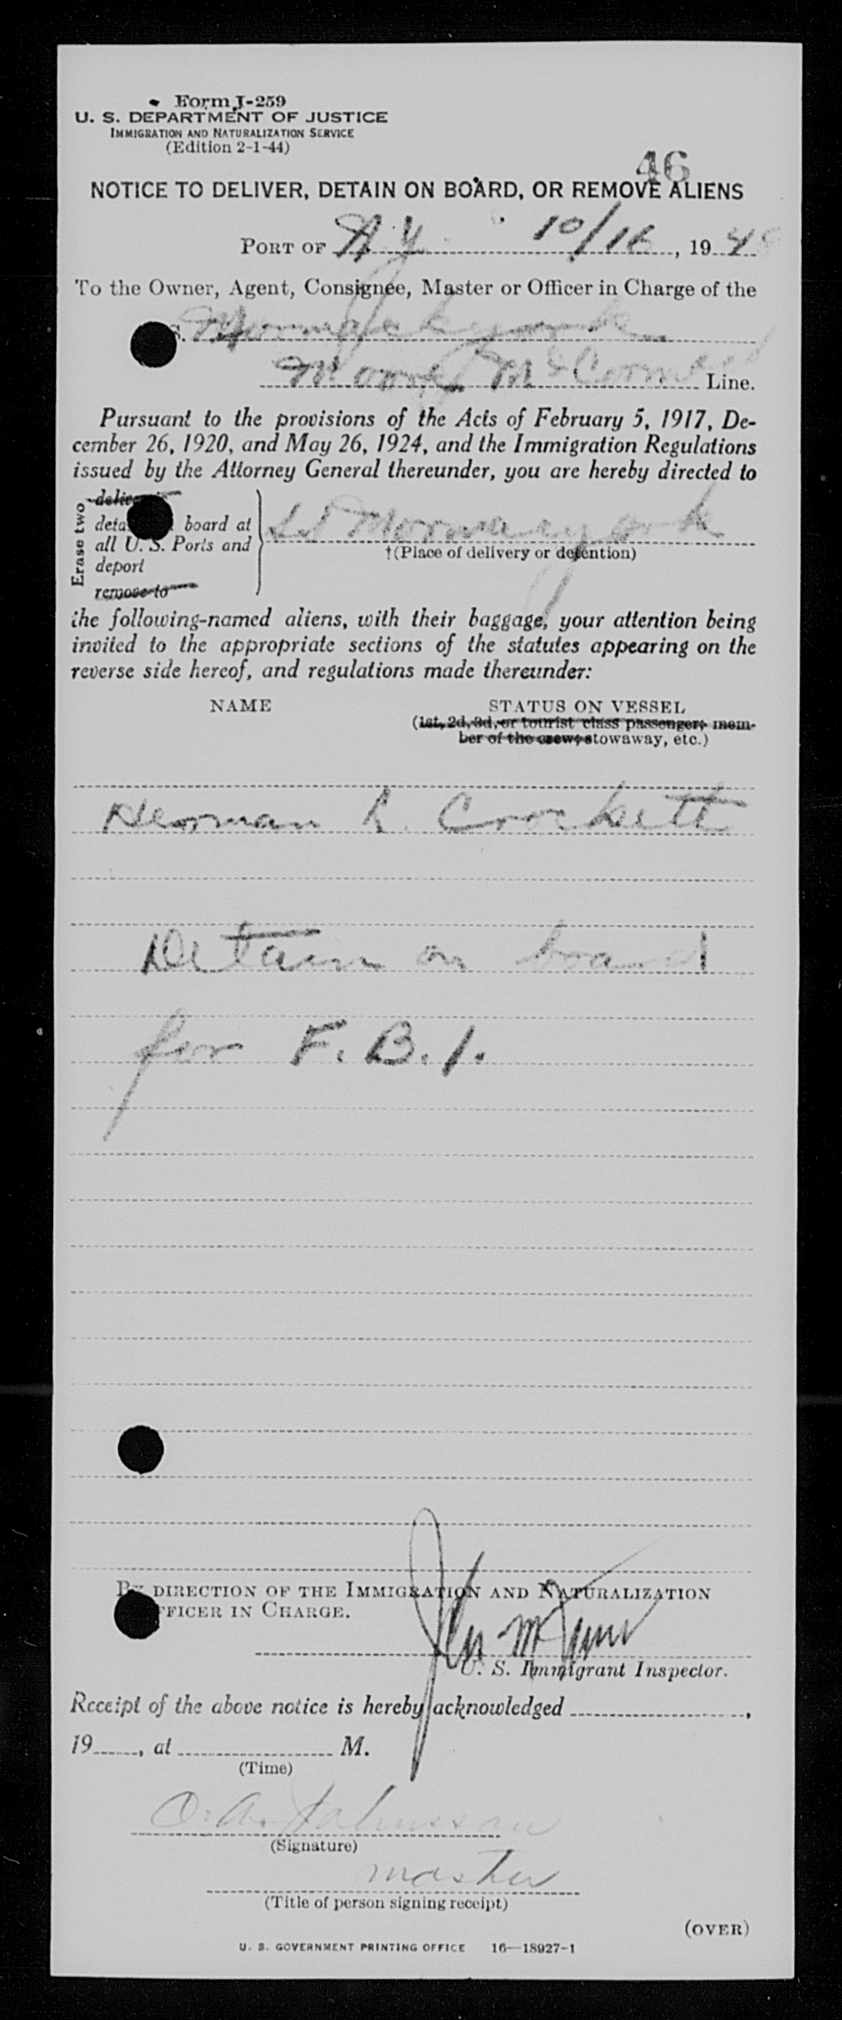 Form I-259
U. S. DEPARTMENT OF JUSTICE
IMMIGRATION AND NATURALIZATION SERVICE
(Edition 2-1-44)
46
NOTICE TO DELIVER, DETAIN ON BOARD, OR REMOVE ALIENS
PORT OF N.Y. 10/16, 194
To the Owner, Agent, Consignee, Master or Officer in Charge of the
S. Mormacyork
Moore McCormack Line.
Pursuant to the provisions of the Acts of February 5, 1917, De-
cember 26, 1920, and May 26, 1924, and the Immigration Regulations
issued by the Attorney General thereunder, you are hereby directed to
Erase two
board at
all U. S. Ports and
deport
remove to
SS Mormacyork
†(Place of delivery or detention)
the following-named aliens, with their baggage, your attention being
invited to the appropriate sections of the statutes appearing on the
reverse side hereof, and regulations made thereunder:
NAME STATUS ON VESSEL
(1st, 2d, 3d, or tourist class passenger; mem-
ber of the crew; stowaway, etc.)
Herman L. Crockett
Detain on board
for F.B.I.
BY DIRECTION OF THE IMMIGRATION AND NATURALIZATION
OFFICER IN CHARGE.
U. S. Immigrant Inspector.
Receipt of the above notice is hereby acknowledged ,
19 , at M.
(Time)
O. A. Johnsson
(Signature)
master
(Title of person signing receipt)
(OVER)
U. S. GOVERNMENT PRINTING OFFICE 16—18927-1